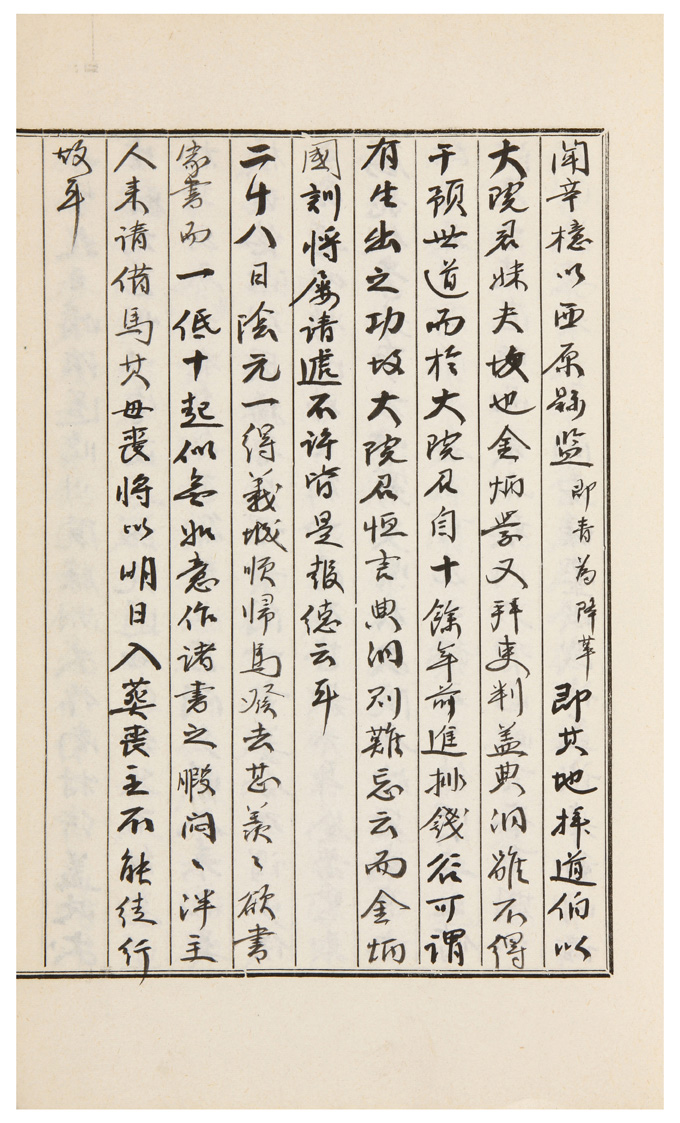 聞辛檍以西原縣監即青為降革即其地拜道伯以
大院君妹夫故也金炳學又拜吏判蓋典洞雖不得
干預世道而於大院君自十餘年前進排錢谷可謂
有生出之功故大院君恒言典洞則難忘云而金炳
國訓將屢請遞不許皆是報德云耳
二十八日陰元一得義城順歸馬發去甚羨〻欲書
家書而一低十起似無如意作諸書之暇悶〻泮主
人來請借馬其母喪將以明日入葬喪主不能徒行
故耳